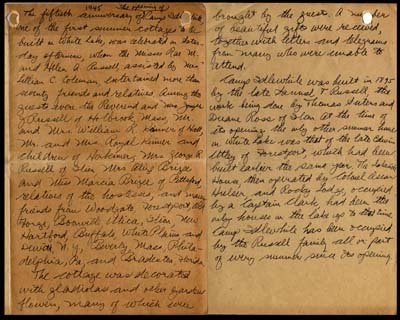 1945 The opening of
The fiftieth anniversary of Camp Idlewhile
one of the first summer cottages to be
built on White Lake, was observed on Satur-
day afternoon, when the Misses Rae M.
and Helen S. Russell, assisted by Mrs.
Lillian C. Coleman entertained more than
seventy friends and relatives. Among the
guests were the Reverend and Mrs. Joseph
Russell of Holbrook, Mass., Mr.
and Mrs. William R. of
Mr. and Mrs. Royal Keiner and
children of Herkimer, Mrs. George R.
Russell of Ilion, Mrs. Brize
and Miss Marcia Brize of
relatives of the hostesses and many
friends from Woodgate, Forestport,
Forge, Boonville, Utica, Ilion, New
Hartford, Buffalo, White Plains and
Dewitt, N.Y., Beverly, Mass., Phila-
delphia, Pa., and Bradenton, Florida.
The cottage was decorated
with gladiolas and other garden
flowers, many of which were
brought by the guests. A number
of beautiful gifts were received,
together with letters and telegrams
from many who were unable to
attend.
Camp Idlewhile was built in 1895
by the late Samuel T. Russell, the
work being done by Thomas and
Deane Rose of Ilion. At the time of
its opening the only other summer home
on White Lake was that of the late
Utley of Forestport, which had been
built earlier the same year. The
House, then operated by Colonel
and Rocky Lodge, occupied
by a Captain Clark, had been the
only houses on the lake up to that time.
Camp Idlewhile has been occupied
by the Russell family all or part
of every summer since its opening.